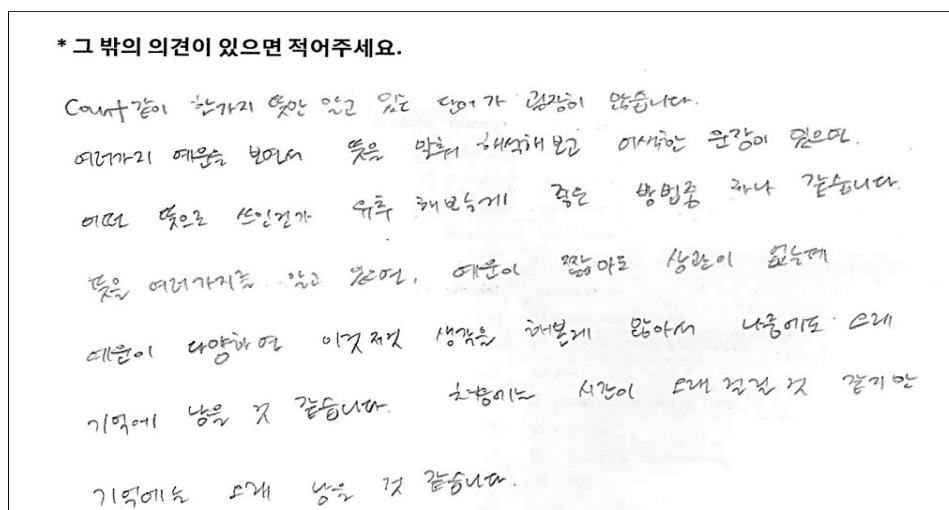 * 그 밖의 의견이 있으면 적어주세요.
Count같이 한가지 뜻만 알고 있는 단어가 굉장히 많습니다.
여러가지 예문을 보면서 뜻을 맞춰 해석해보고 어색한 문장이 있으면.
어떤 뜻으로 쓰인건가 유추 해보는게 좋은 방법중 하나 같습니다.
뜻을 여러가지를 알고 있으면, 예문이 짧아도 상관이 없는데
예문이 다양하면 이것저것 생각을 해본게 많아서 나중에도 오래
기억에 남을 것 같습니다. 처음에는 시간이 오래 걸릴 것 같지만
기억에는 오래 남을 것 같습니다.